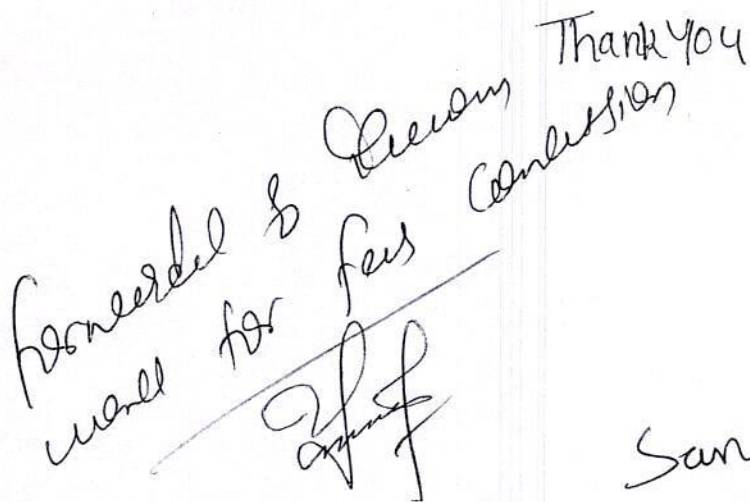 Thank You
forwarded to
for fees concession
San